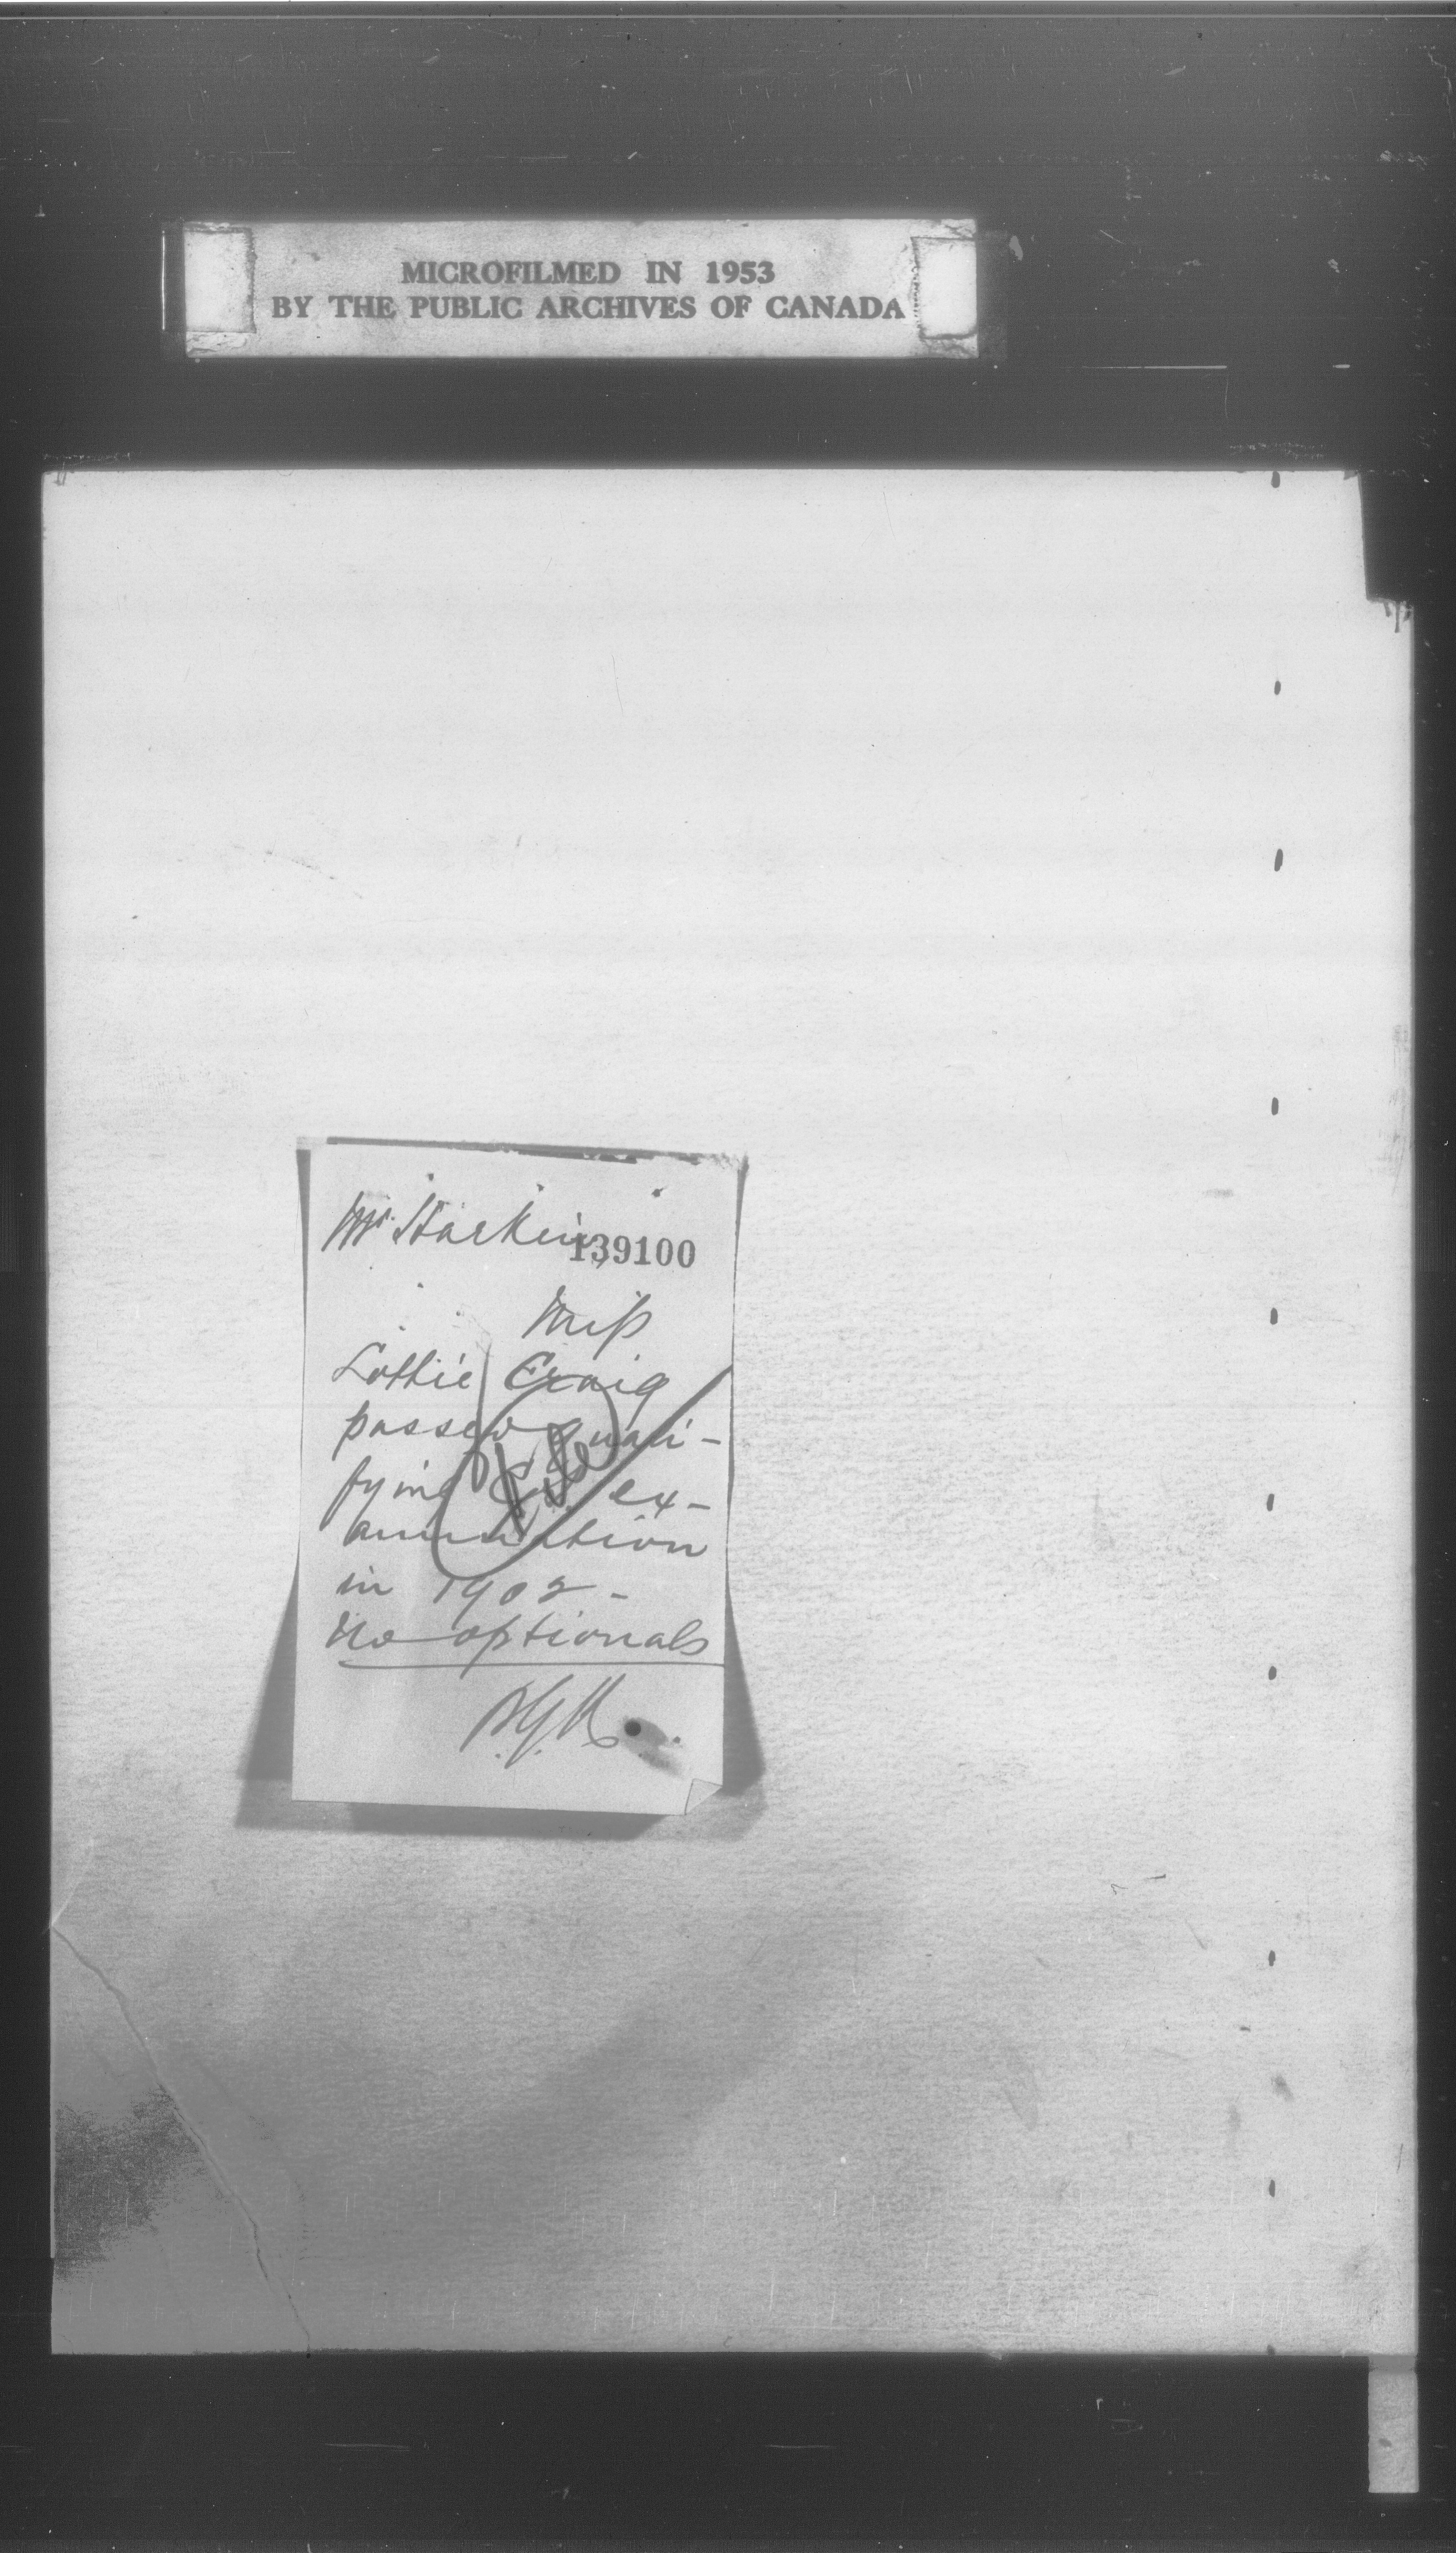 MICROFILMED IN 1953
BY THE PUBLIC ARCHIVES OF CANADA
Mr. Harkin,
139100
Miss
Lottie Craig
passed quali-
fying C.S. ex-
amination
in 1902 -
No optionals